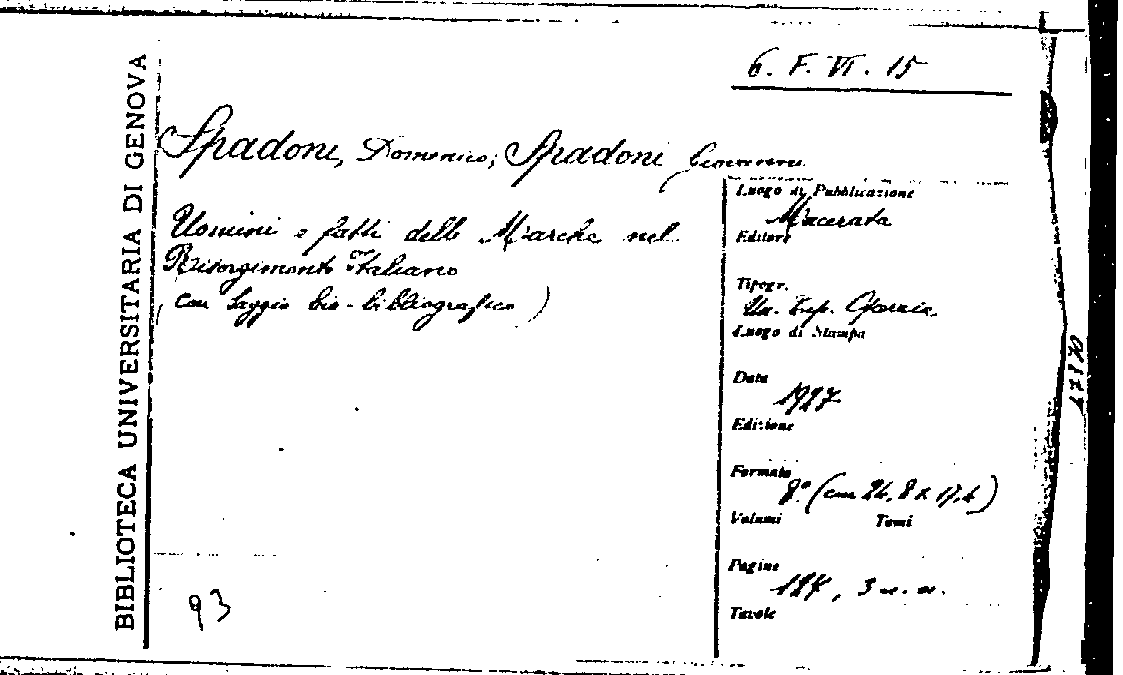 BIBLIOTECA UNIVERSITARIA DI GENOVA
6. F. VI. 15
Spadoni, Domenico; Spadoni Giovanni
Uomini e fatti delle Marche nel
Risorgimento Italiano
(con saggio bio-bibliografico)
Luogo di Pubblicazione
Macerata
Editore
Tipogr.
Un. Tip.
Luogo di Stampa
Data
1927
Edizione
Formato
8° (cm 24,8 x 17,4)
Volumi Tomi
Pagine
, 3 n. n.
Tavole
93